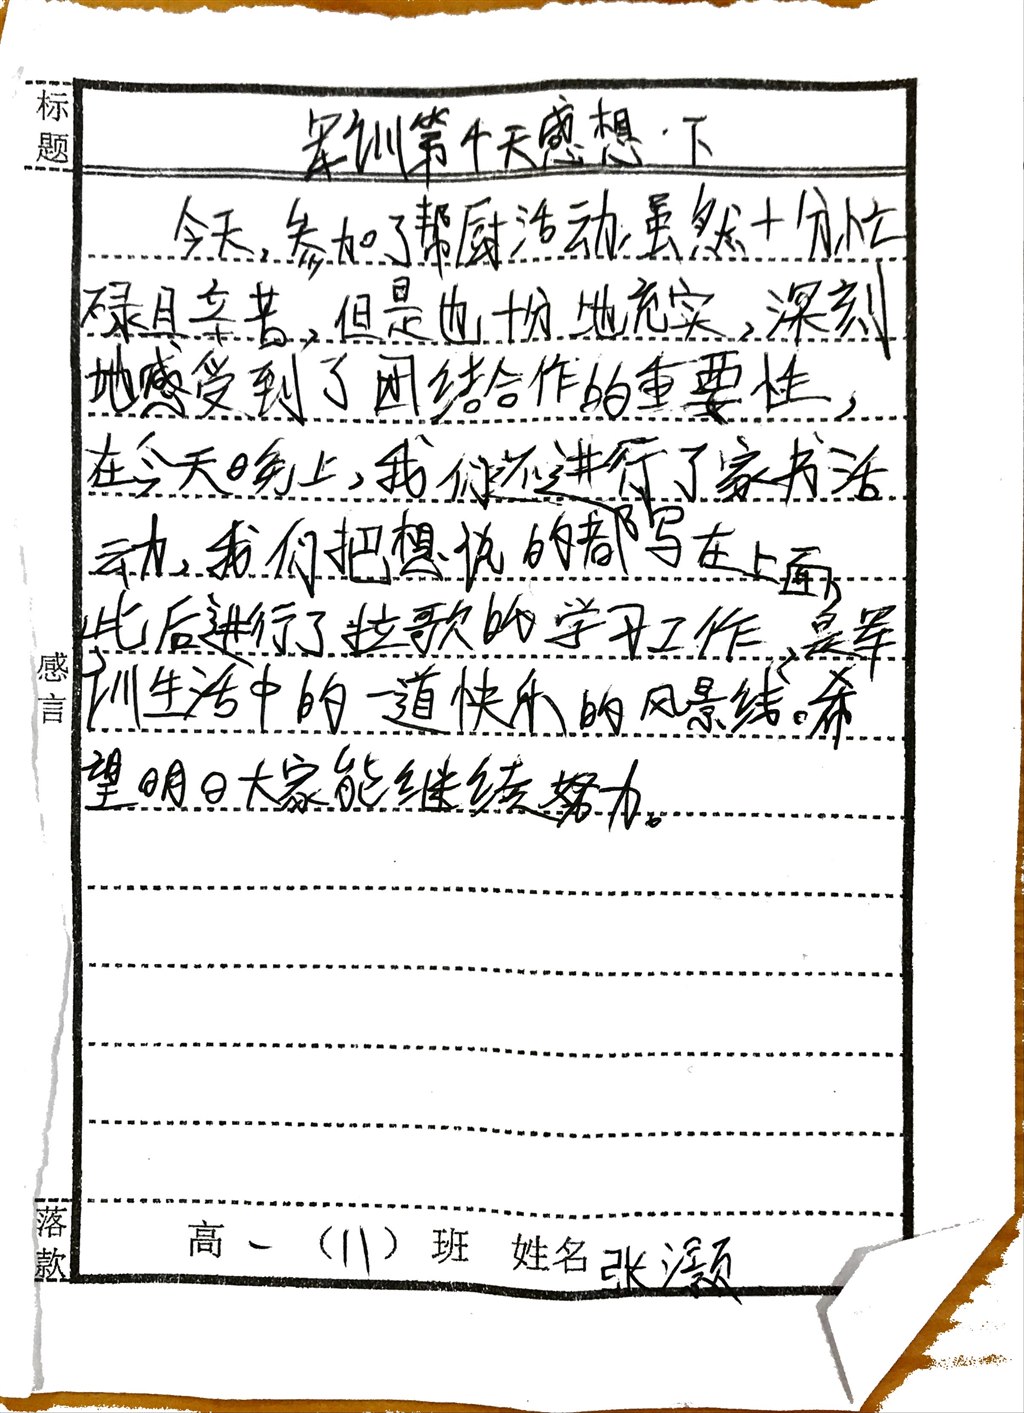 标题
军训第4天感想·下
今天,参加了帮厨活动,虽然十分忙
碌且辛苦,但是也十份地充实,深刻
地感受到了团结合作的重要性,
在今天晚上,我们还进行了家书活
动,我们把想说的都写在上面,
此后进行了拉歌的学习工作,是军
感言
训生活中的一道快乐的风景线。希
望明日大家能继续努力。
落款
高一(11)班 姓名张灏